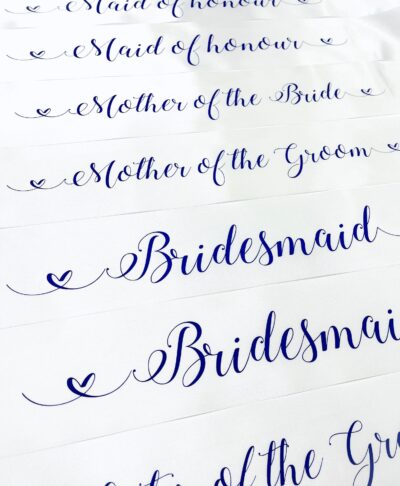 Maid of honour
Maid of honour
Mother of the Bride
Mother of the Groom
Bridesmaid
Bridesmai
of the Gro